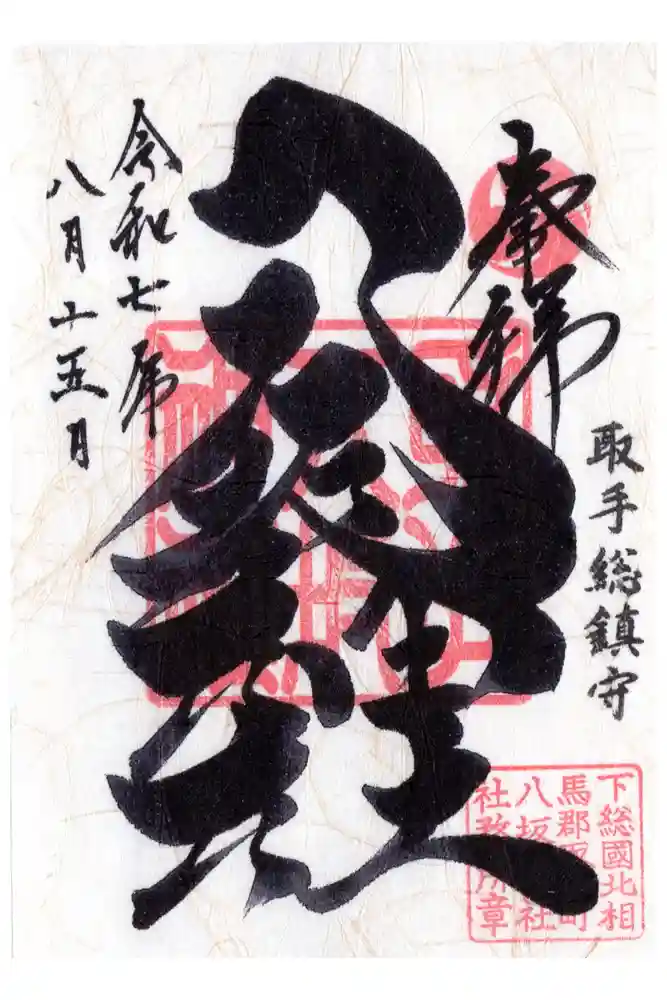 奉拝
取手総鎮守
八坂神社
令和七年
八月十五日
下総國北相
馬郡取手町
八坂神社
社務所章